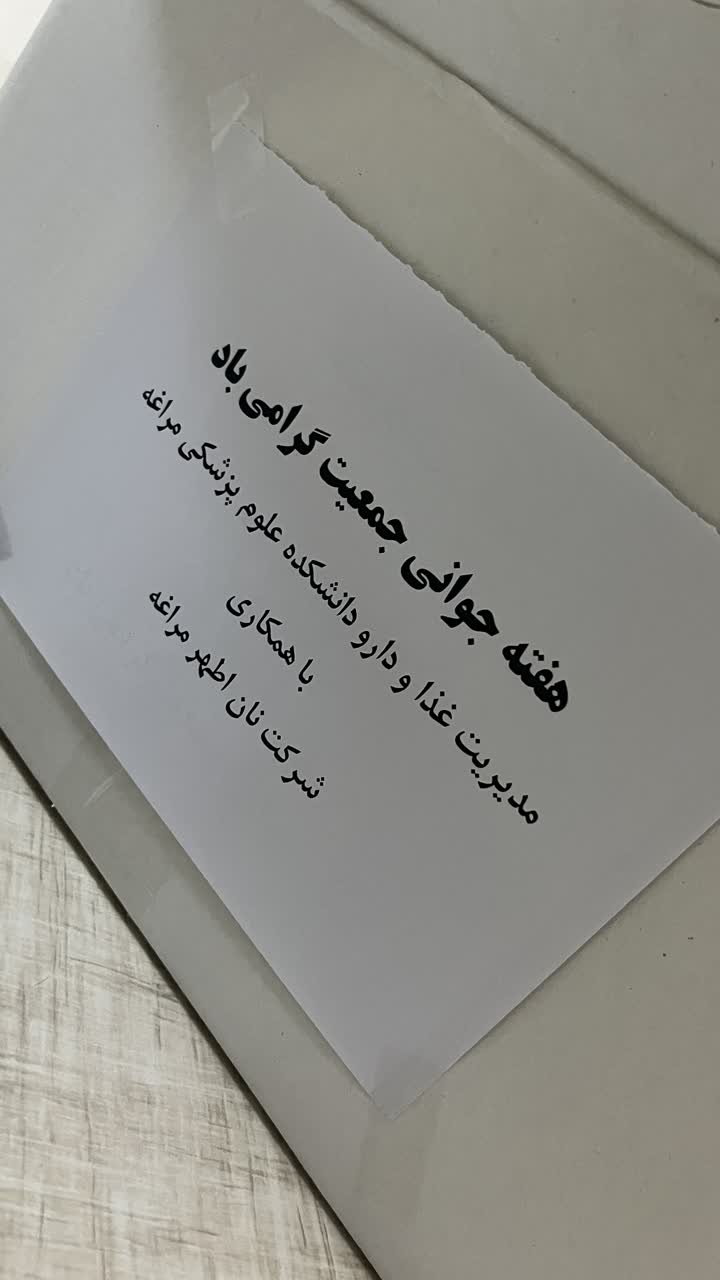 هفته جوانی جمعیت گرامی باد
مدیریت غذا و دارو دانشکده علوم پزشکی مراغه
با همکاری
شرکت نان اطهر مراغه